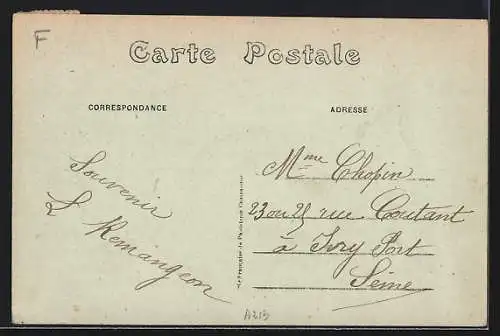 F
Carte Postale
CORRESPONDANCE
ADRESSE
Souvenir
L Remangeon
Mme Chopin
23 ou 25 rue Coutant
à Ivry Port
Seine
A213